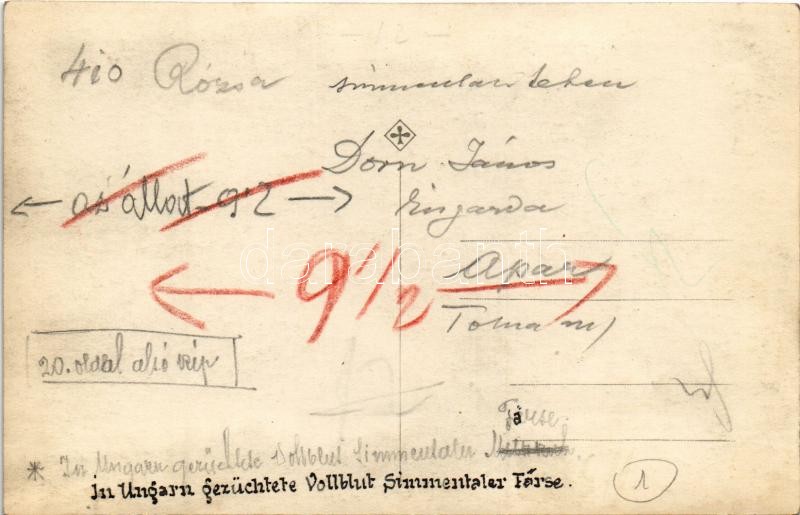 410 Rózsa simmentaler tehén
Dorn János
← az állat 9·2 →
Apar
← 9 1/2 →
Tolna m/
20. oldal alsó kép
Färse.
* In Ungarn gezüchtete Vollblut Simmentaler
In Ungarn gezüchtete Vollblut Simmentaler Färse.
1
darabanth